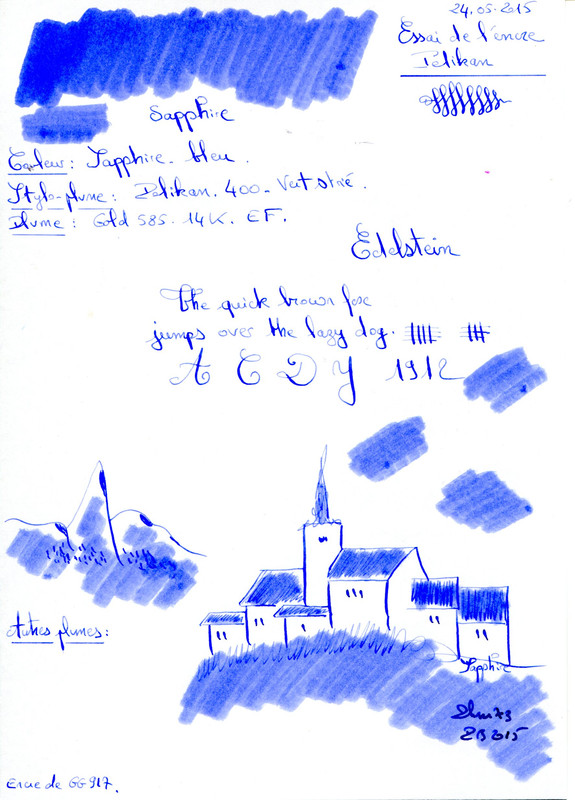 24.05.2015
Essai de l'encre
Pelikan
Sapphire
Couleur : Sapphire - bleu.
Stylo-plume : Pelikan. 400 - Vert strié.
Plume : Gold 585. 14K. EF.
Edelstein
The quick brown fox
jumps over the lazy dog.
A C D Y 1912
Autres plumes :
Sapphire
2015
Encre de GG917.